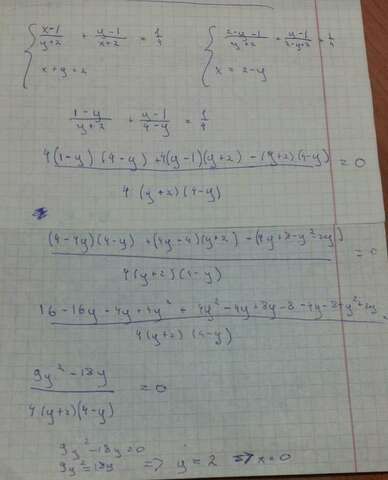 { x-1/y+2 + y-1/x+2 = 1/4   { 2-y-1/y+2 + y-1/2-y+2 = 1/4
x+y=2   x=2-y
1-y/y+2 + y-1/4-y = 1/4
4(1-y)(4-y)+4(y-1)(y+2)-(y+2)(4-y)/4(y+2)(4-y) = 0
(4-4y)(4-y)+(4y-4)(y+2)-(4y+8-y²-2y)/4(y+2)(4-y) = 0
16-16y-4y+4y²+4y²-4y+8y-8-4y-8+y²+2y/4(y+2)(4-y) =
9y²-18y/4(y+2)(4-y) = 0
9y²-18y=0
9y²=18y => y=2 => x=0